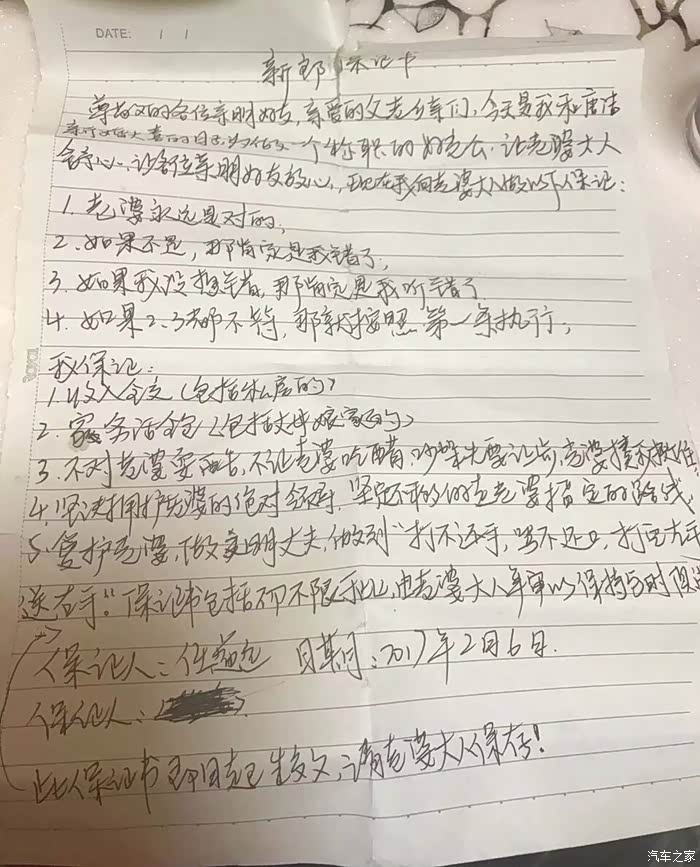 DATE: / /
新郎保证书
尊敬的各位亲朋好友,亲爱的父老乡亲们,今天是我和唐洁
一个称职的好老公.让老婆大人
舒心.让各位亲朋好友放心,现在我向老婆大人做以下保证:
1.老婆永远是对的,
2.如果不是,那肯定是我错了,
3.如果我没搞错,那肯定是我听错了
4.如果2.3都不符,那就按照第一条执行,
我保证:
1.收入全交(包括私房的)
2.家务活全包(包括丈母娘家的)
3.不对老婆耍,不让老婆吃醋.吵架先要让步,老婆
4.坚决拥护老婆的绝对领导.坚定不移的走老婆指定的路线,
5.爱护老婆,做文明丈夫,做到“打不还手,骂不还口,打完左手
送右手。”保证书包括但不限于此,由老婆大人年审以保持与时俱进
保证人:任 日期:2017年2月6日.
保证人:
此保证书即日起已生效,请老婆大人保存!
汽车之家